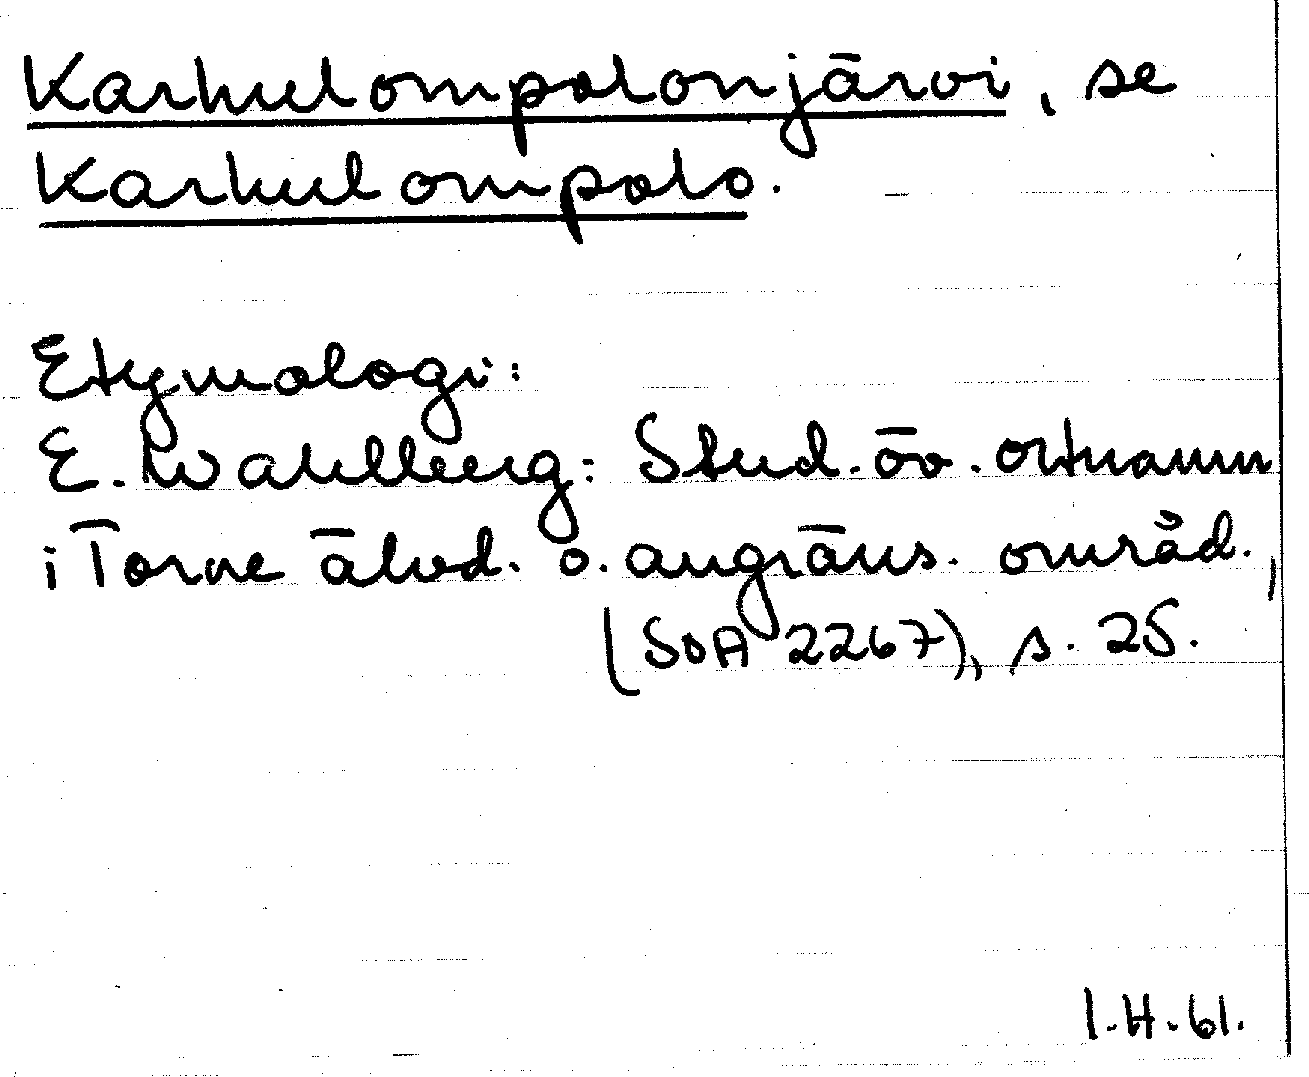 Karhulompolonjärvi, se
Karhulompolo.
Etymologi:
E. Wahlberg: Stud. öv. ortnamn
i Torne älvd. o. angräns. områd.,
(SOA 2267), s. 25.
I.H.61.